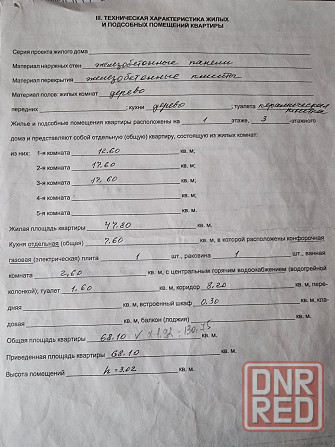 III. ТЕХНИЧЕСКАЯ ХАРАКТЕРИСТИКА ЖИЛЫХ
И ПОДСОБНЫХ ПОМЕЩЕНИЙ КВАРТИРЫ
Серия проекта жилого дома
Материал наружных стен железобетонные панели
Материал перекрытия железобетонные плиты
Материал полов: жилых комнат дерево
передних ; кухни дерево ; туалета керамическая плитка
Жилые и подсобные помещения квартиры расположены на 1 этаже, 3 -этажного
дома и представляют собой отдельную (общую) квартиру, состоящую из жилых комнат:
из них: 1-я комната 12.60 кв. м;
2-я комната 17.60 кв. м;
3-я комната 17,60 кв. м;
4-я комната кв. м;
5-я комната кв. м
Жилая площадь квартиры 47.80 кв. м.
Кухня отдельная (общая) 7.60 кв. м, в которой расположены конфорочная
газовая (электрическая) плита 1 шт., раковина 1 шт., ванная
комната 2,60 кв. м, с центральным горячим водоснабжением (водогрейной
колонкой); туалет 1.60 кв. м, коридор 8.20 кв. м, пере-
дняя кв. м, встроенный шкаф 0.30 кв. м, кла-
довая кв. м, балкон (лоджия) кв. м.
Общая площадь квартиры 68.10 кв. м.
Приведенная площадь квартиры 68.10 кв. м.
Высота помещений h=3.02 кв. м.
DNR
RED